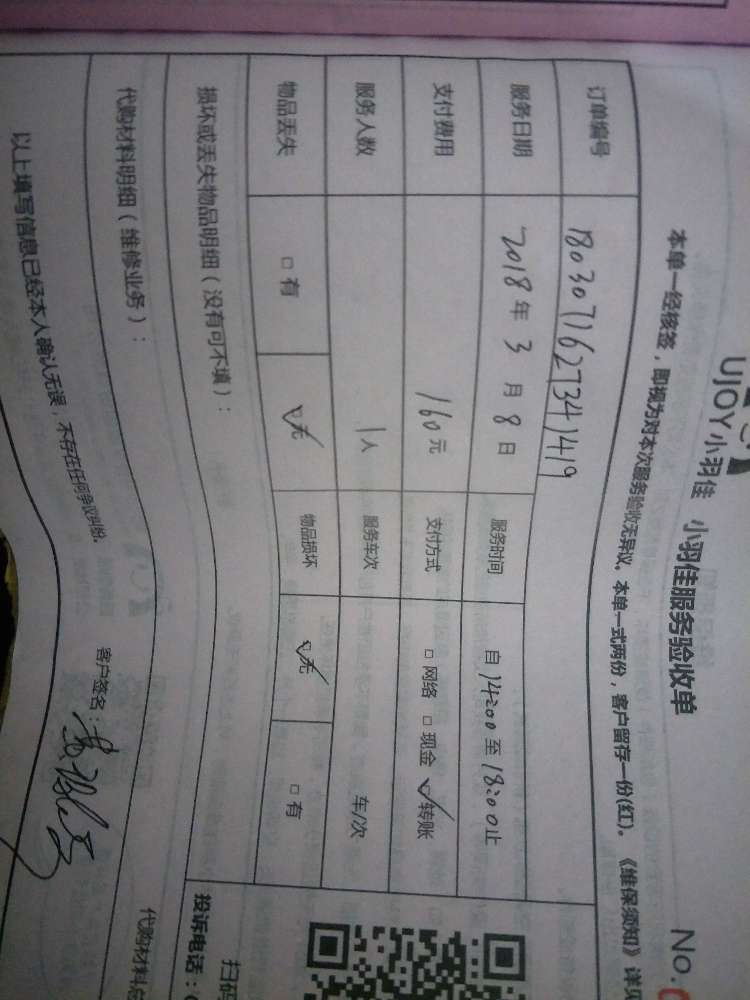 UJOY小羽佳 小羽佳服务验收单 No.
本单一经核签，即视为对本次服务验收无异议。本单一式两份，客户留存一份(红)。《维保须知》详见
订单编号 1803071627341419
服务日期 2018年3月8日 服务时间 自14:00至18:00止
支付费用 160元 支付方式 □网络 □现金 ☑转账
服务人数 1人 服务车次 车/次
物品丢失 □有 ☑无 物品损坏 ☑无 □有
损坏或丢失物品明细（没有可不填）： 扫码
投诉电话：
代购材料明细（维修业务）： 代购材料总
以上填写信息已经本人确认无误，不存在任何争议纠纷。 客户签名：